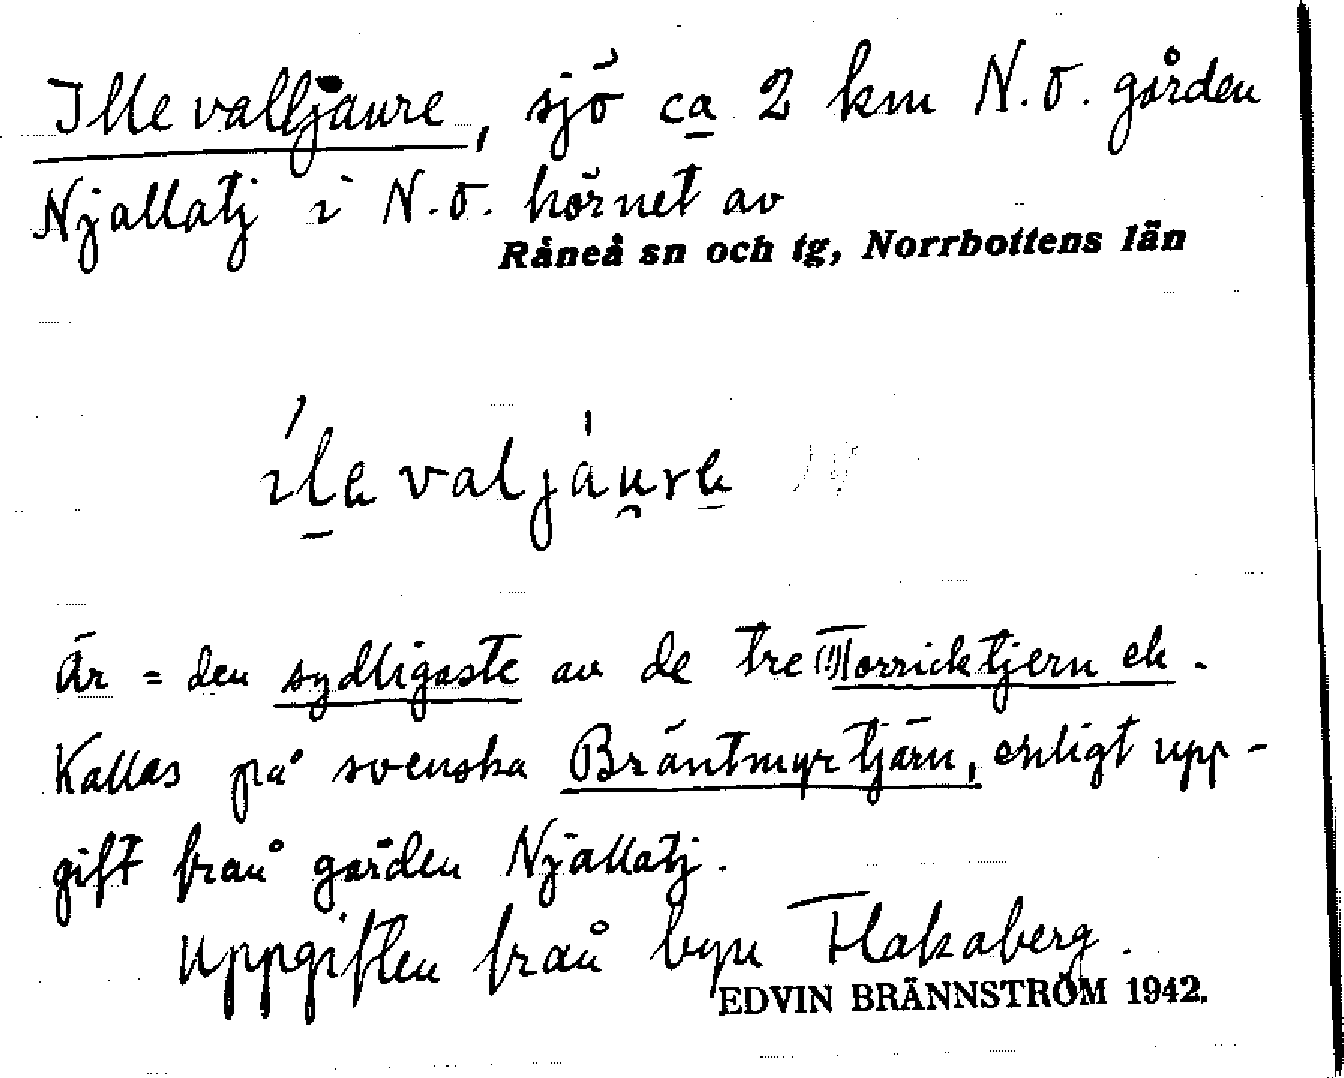 Illevalljaure, sjö ca 2 km N.O. gården
Njallatj i N.O. hörnet av
Råneå sn och tg, Norrbottens län
ı́le valjáu̯re
Är = den sydligaste av de tre (!) Torricktjern ek.
Kallas på svenska Bräntmyrtjärn, enligt upp-
gift från gården Njallatj.
Uppgiften från byn Flakaberg.
EDVIN BRÄNNSTRÖM 1942.